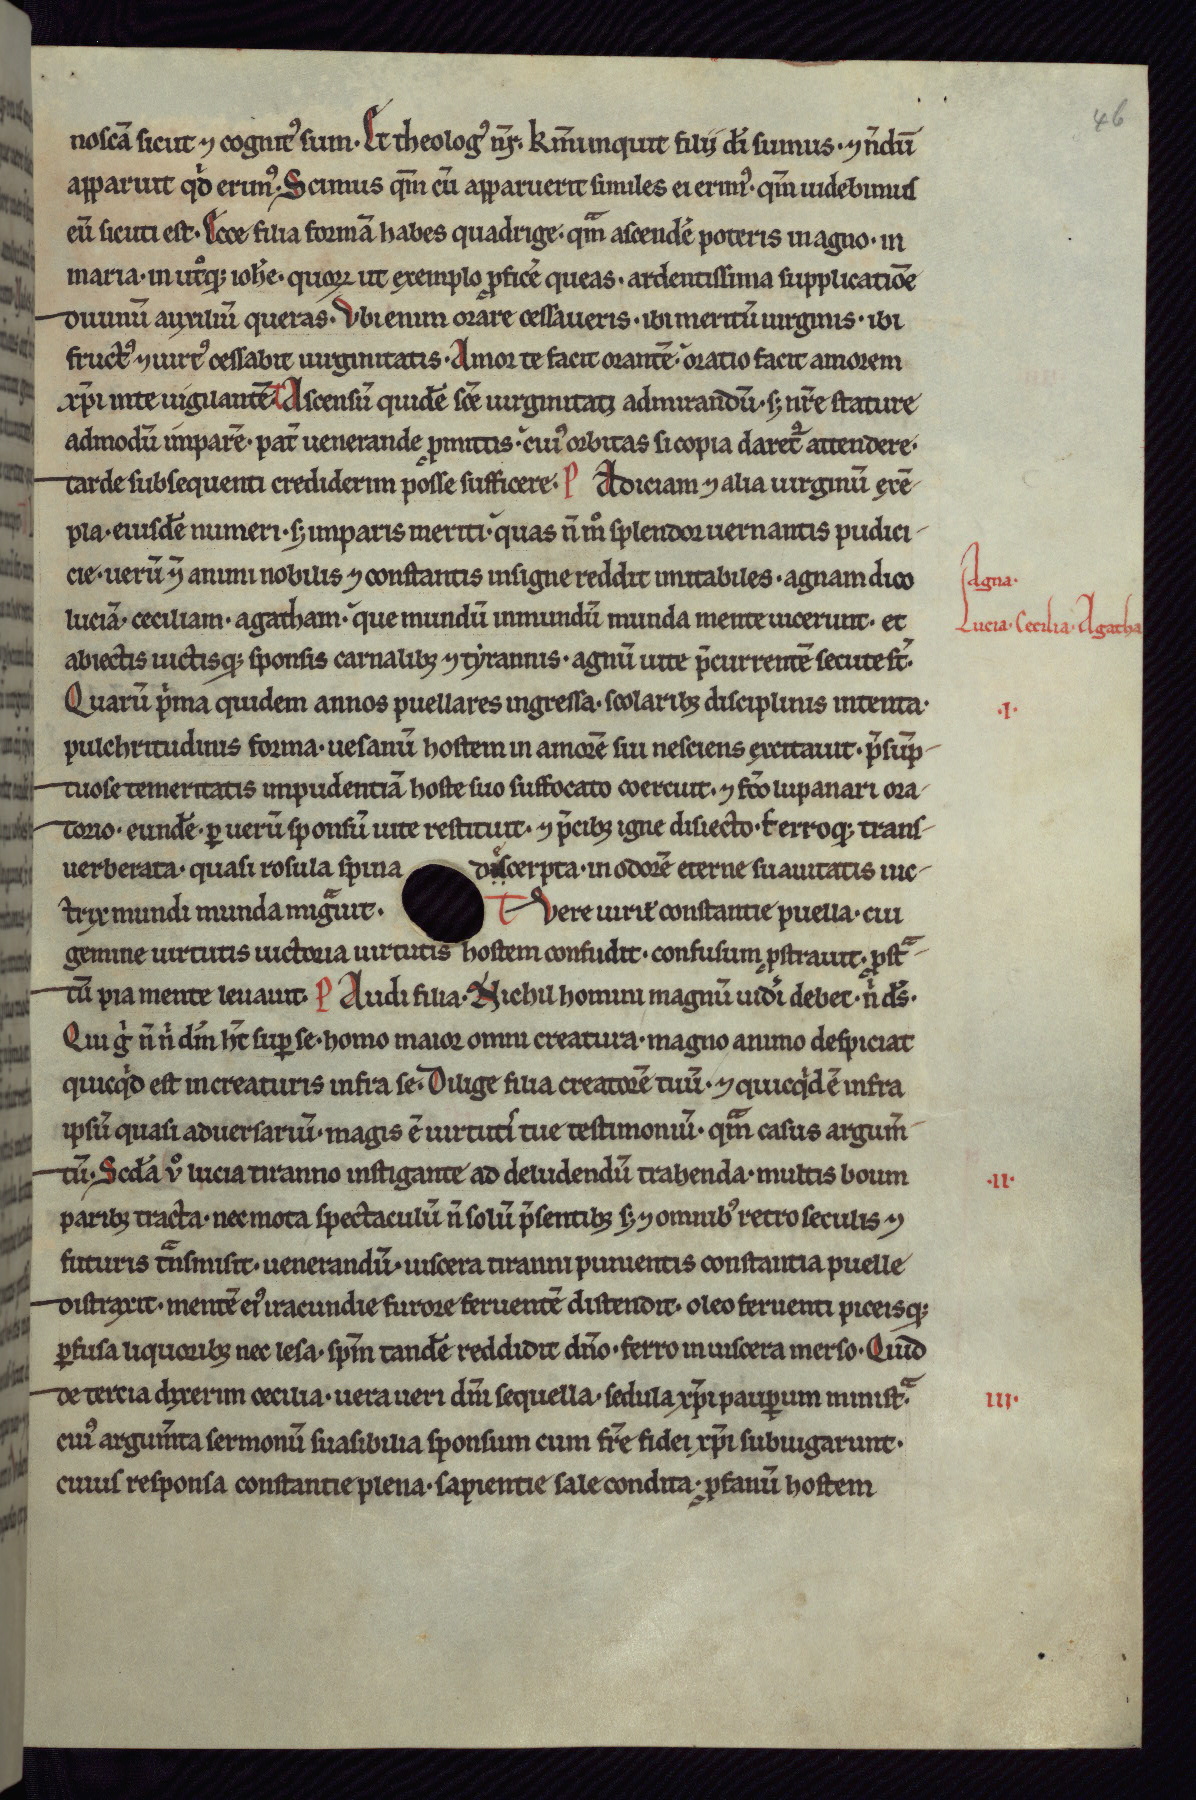 46
noscā sicut ⁊ cognitꝰ sum. Et theologꝰ nr̄. kr̄mi inquit filii di̅ sumus. ⁊ n̄dū
apparuit qͥd erimꝰ. Scimus qm̄ cū apparuerit similes ei erimꝰ. qm̄ uidebimus
eū sicuti est. Ecce filia formā habes quadrige. qͣm ascendē poteris in agno. in
maria. in utͦqꝫ ioħe. quoꝝ ut exemplo ꝓficē queas. ardentissima supplicatiōe
diuinū auxiliū queras. Vbi enim orare cessaueris. ibi meritū uirginis. ibi
fructꝰ ⁊ uirtꝰ cessabit uirginitatis. Amor te facit orantē. oratio facit amorem
xp̄i in te uigilantē. T Ascensū quidē scē uirginitatꝭ admirandū. sꝫ nr̄e stature
admodū imparē. pat̄ uenerande ꝓmittis. cuiꝰ orbitas si copia daret᷑ attendere.
tarde subsequenti crediderim posse sufficere. P Adiciam ⁊ alia uirginū exē-
pla. eiusdē numeri. sꝫ imparis meriti. quas n̄ mͦ splendor uernantis pudici-
cie. uerū ⁊ animi nobilis ⁊ constantis insigne reddit imitabiles. agnam dico
Agna.
luciā. ceciliam. agatham. que mundū inmundū munda mente uicerunt. et
Lucia. Cecilia. Agatha
abiectis uictisqꝫ sponsis carnalibꝫ ⁊ tyrannis. agnū uite p̄currentē secute st̄.
Quarū pͥma quidem annos puellares ingressa. scolaribꝫ disciplinis intenta.
.I.
pulchritudinis forma. uesanū hostem in amorē sui nesciens excitauit. p̄sūp-
tuose temeritatis impudentiā hoste suo suffocato coercuit. ⁊ fc̄o lupanari ora-
torio. eundē. ꝑ uerū sponsū uite restituit. ⁊ p̄cibꝫ igne disiecto. ferroqꝫ trans-
uerberata. quasi rosula spina discerpta. in odorē eterne suauitatis uic-
trix mundi munda migͣuit. T Vere uiriƚ constantie puella. cui
gemine uirtutis uictoria uirtutis hostem confudit. confusum ꝓstrauit. ꝓstͣ-
tū pia mente leuauit. P Audi filia. Nichil homini magnū uidi̅ debet. nͥ ds̄.
Qui gͥ n̄ nͥ dm̄ ħt suꝑ se. homo maior omni creatura. magno animo despiciat
quicqͥd est in creaturis infra se. Dilige filia creatorē tuū. ⁊ quicqͥd ē infra
ipsū quasi aduersariū. magis ē uirtuti̅ tue testimoniū. qͣm casus argum̄-
tū. Scdā uͦ lucia tiranno instigante ad deludendū trahenda. multis boum
.II.
paribꝫ tracta. nec mota spectaculū n̄ solū p̄sentibꝫ sꝫ ⁊ omnibꝰ retro seculis ⁊
futuris tͣnsmisit. uenerandū. uiscera tiranni punientis constantia puelle
distraxit. mentē eiꝰ iracundie furore feruentē distendit. oleo feruenti piceisqꝫ
ꝑfusa liquoribꝫ nec lesa. spm̄ tandē reddidit dn̄o. ferro in uiscera merso. Quid
de tercia dixerim cecilia. uera ueri dm̄ sequella. sedula xp̄i pauꝑum ministͣ.
III.
cuiꝰ argum̄ta sermonū suasibilia sponsum cum fr̄e fidei xp̄i subiugarunt.
cuius responsa constantie plena. sapientie sale condita. ꝓfanū hostem